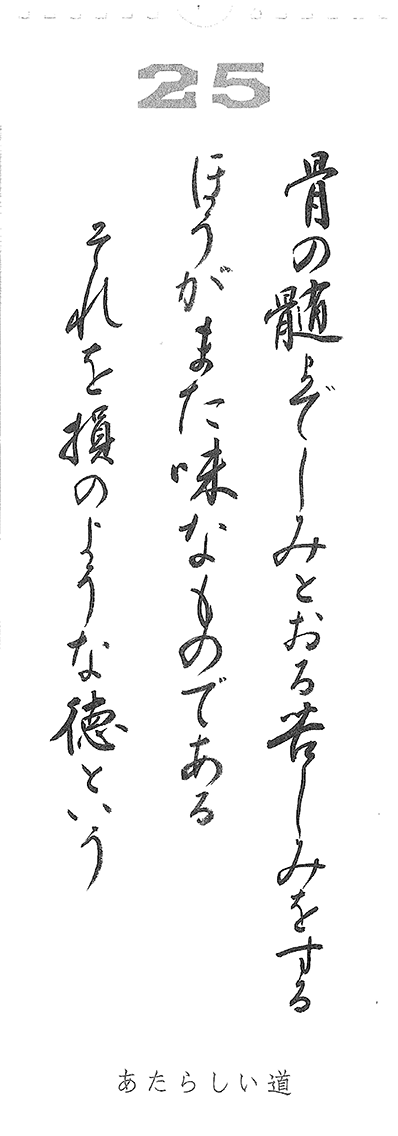 25
骨の髄までしみとおる苦しみをする
ほうがまた味なものである
それを損のような徳という
あたらしい道